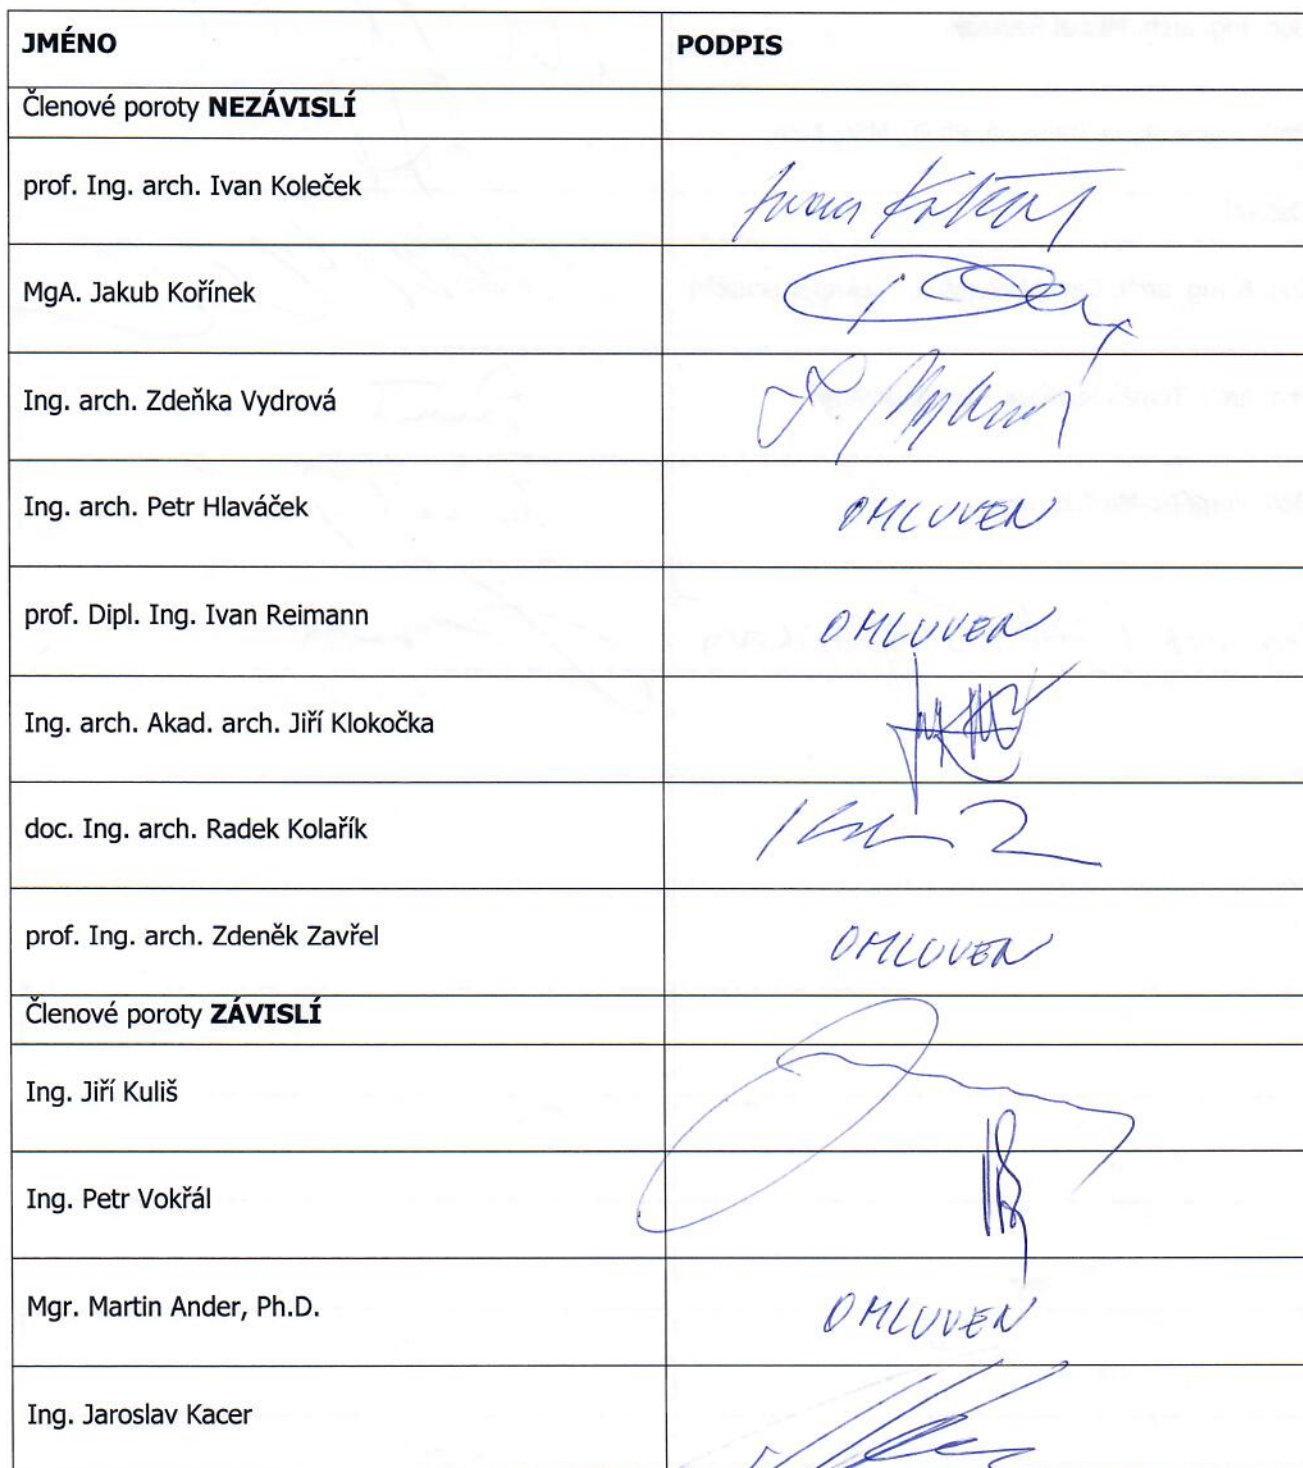 JMÉNO PODPIS
Členové poroty NEZÁVISLÍ
prof. Ing. arch. Ivan Koleček
MgA. Jakub Kořínek
Ing. arch. Zdeňka Vydrová
Ing. arch. Petr Hlaváček OMLUVEN
prof. Dipl. Ing. Ivan Reimann OMLUVEN
Ing. arch. Akad. arch. Jiří Klokočka
doc. Ing. arch. Radek Kolařík
prof. Ing. arch. Zdeněk Zavřel OMLUVEN
Členové poroty ZÁVISLÍ
Ing. Jiří Kuliš
Ing. Petr Vokřál
Mgr. Martin Ander, Ph.D. OMLUVEN
Ing. Jaroslav Kacer